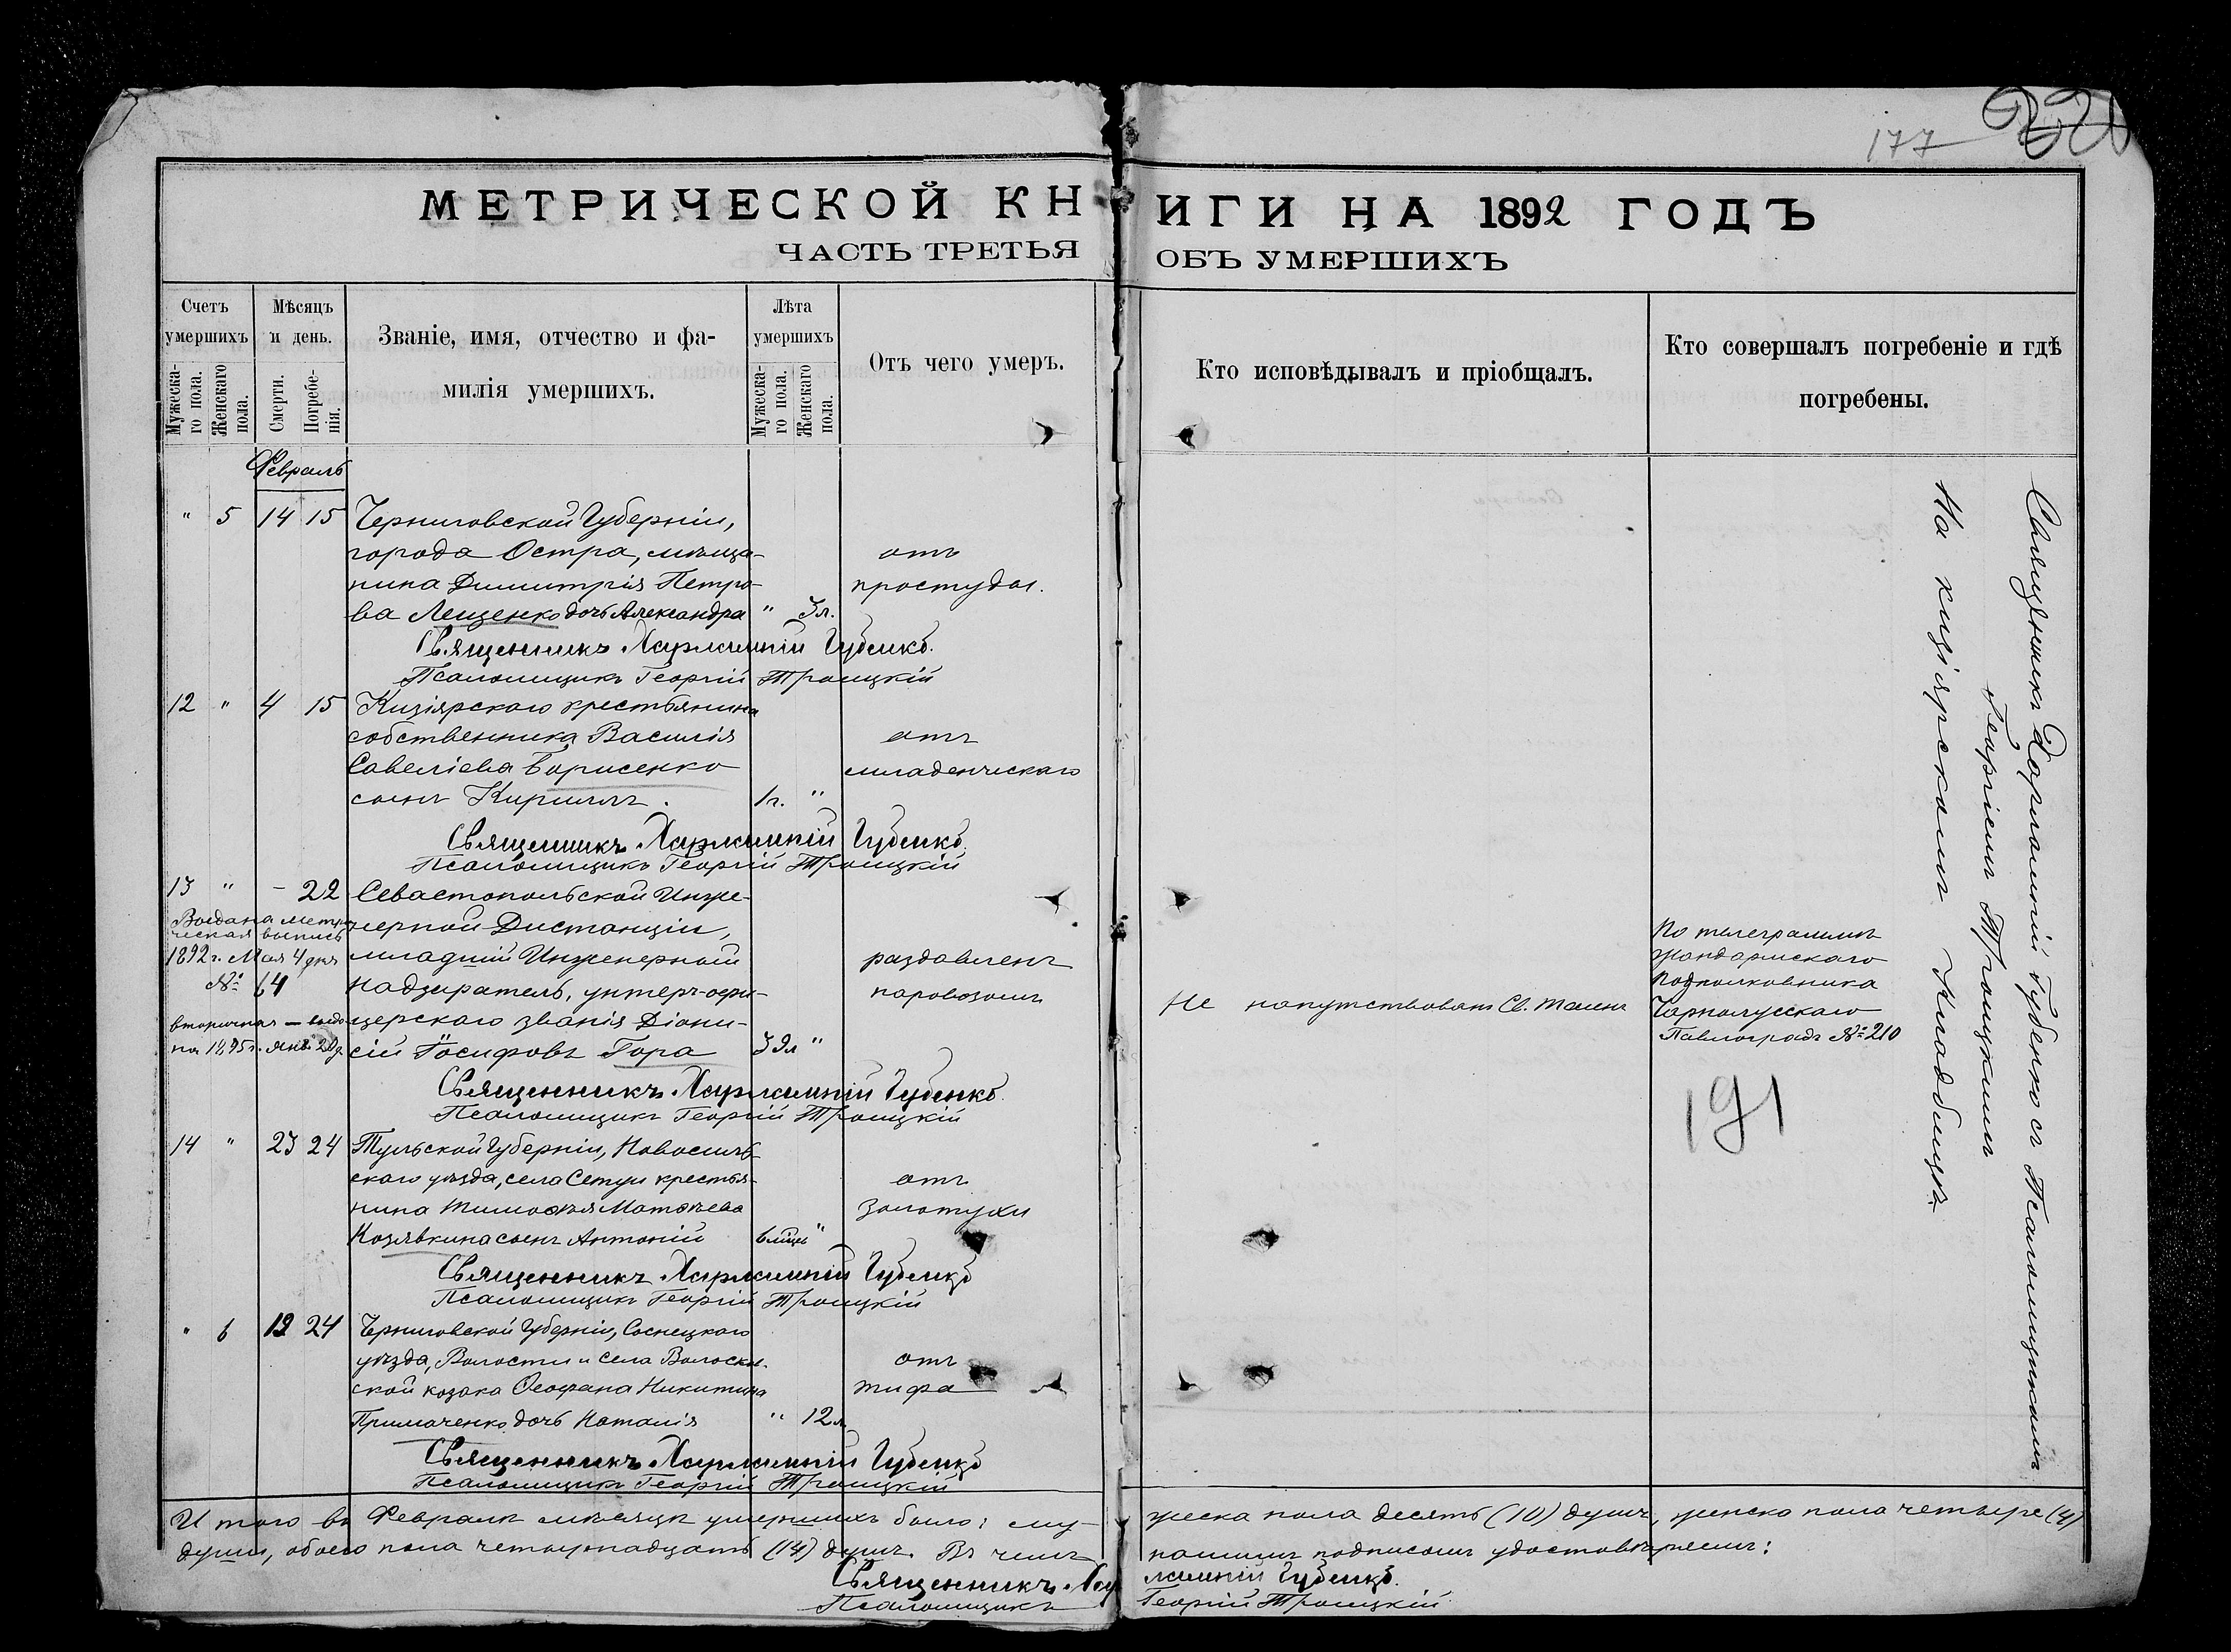 177
МЕТРИЧЕСКОЙ КНИГИ НА 1892 ГОДЪ
ЧАСТЬ ТРЕТЬЯ ОБЪ УМЕРШИХЪ
Счетъ умершихъ
Мужескаго пола.
Женскаго пола.
Мѣсяцъ и день.
Смерти.
Погребенія.
Званіе, имя, отчество и фамилія умершихъ.
Лѣта умершихъ
Мужескаго пола.
Женскаго пола.
Отъ чего умеръ.
Кто исповѣдывалъ и пріобщалъ.
Кто совершалъ погребеніе и гдѣ погребены.
Февраль
" 5 14 15 Черниговской Губерніи,
города Остра, мѣща-
нина Димитрія Петро-
ва Лещенко дочь Александра " 3л.
отъ
простуды.
Священникъ Харлампій Губенко.
Псаломщикъ Георгій Троицкій
12 " 4 15 Кизіярского крестьянина
собственника Василія
Савеліева Борисенко
сынъ Кириллъ. 1г. "
отъ
младенческаго
Священникъ Харлампій Губенко.
Псаломщикъ Георгій Троицкій
13 " - 22 Севастопольской Инже-
нерной Дистанціи,
младшій Инженерный
надзиратель, унтеръ-офи-
церскаго званія Діони-
сій Іосифовъ Гора 39л "
раздавленъ
паровозомъ
Выдана метри-
ческая выпись
1892 г. Мая 4 дня
№ 64
вторичная - выдо
на 1895 г. янв. 20 д.
Не напутствованъ Св. Таинъ
По телеграммѣ
жандармскаго
Подполковника
Чарнолусскаго
Павлоградъ № 210
191
Священникъ Харлампій Губенко.
Псаломщикъ Георгій Троицкій
14 " 23 24 Тульской Губерніи, Новосиль-
скаго уѣзда, села Сетуи крестья-
нина Тимофѣя Матвѣева
Козявкина сынъ Антоній 6 мцъ "
отъ
золотухи
Священникъ Харлампій Губенко
Псаломщикъ Георгій Троицкій
" 6 12 24 Черниговской Губерніи, Сосницкаго
уѣзда, Волости и села Волоскив-
ской козака Феофана Никитина
Примаченко дочь Наталія " 12л.
отъ
тифа
Священникъ Харлампій Губенко
Псаломщикъ Георгій Троицкій
Священникъ Харлампій Губенко съ Псаломщикомъ
Георгіемъ Троицкимъ
На кизіярскомъ Кладбищѣ
Итого въ Февралѣ мѣсяцѣ умершихъ было: му-
жеска пола десять (10) душъ, женска пола четыре (4)
души, обоего пола четырнадцать (14) душъ. Въ чемъ
нашимъ подписомъ удостовѣряемъ:
Священникъ Харлампій Губенко.
Псаломщикъ Георгій Троицкій